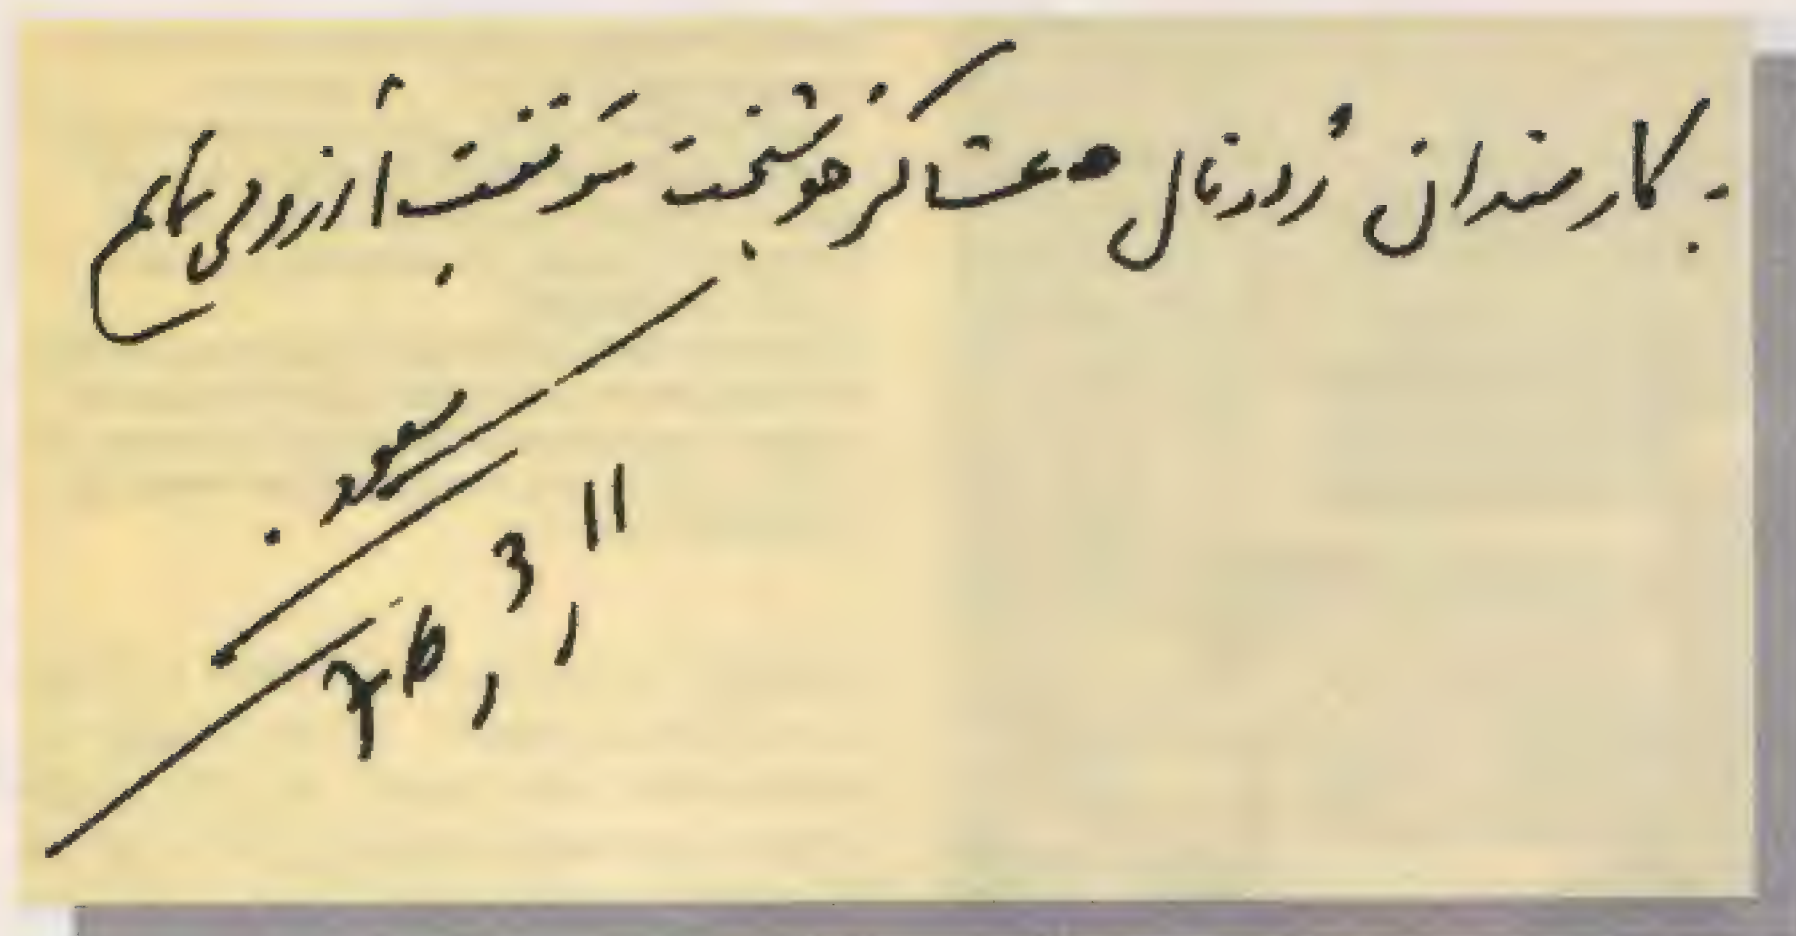 به کارمندان ژورنال خوشبخت موفقیت آرزو می نمایم
مسعود.
76,3,11